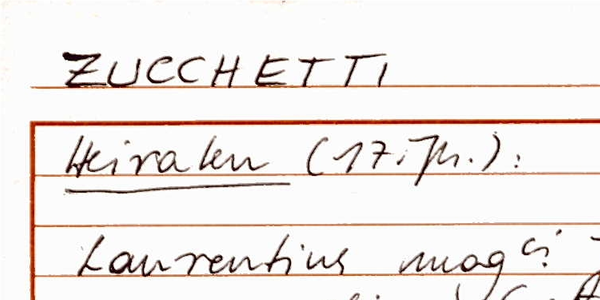 ZUCCHETTI
Heiraten (17. Jh.):
Laurentius mag